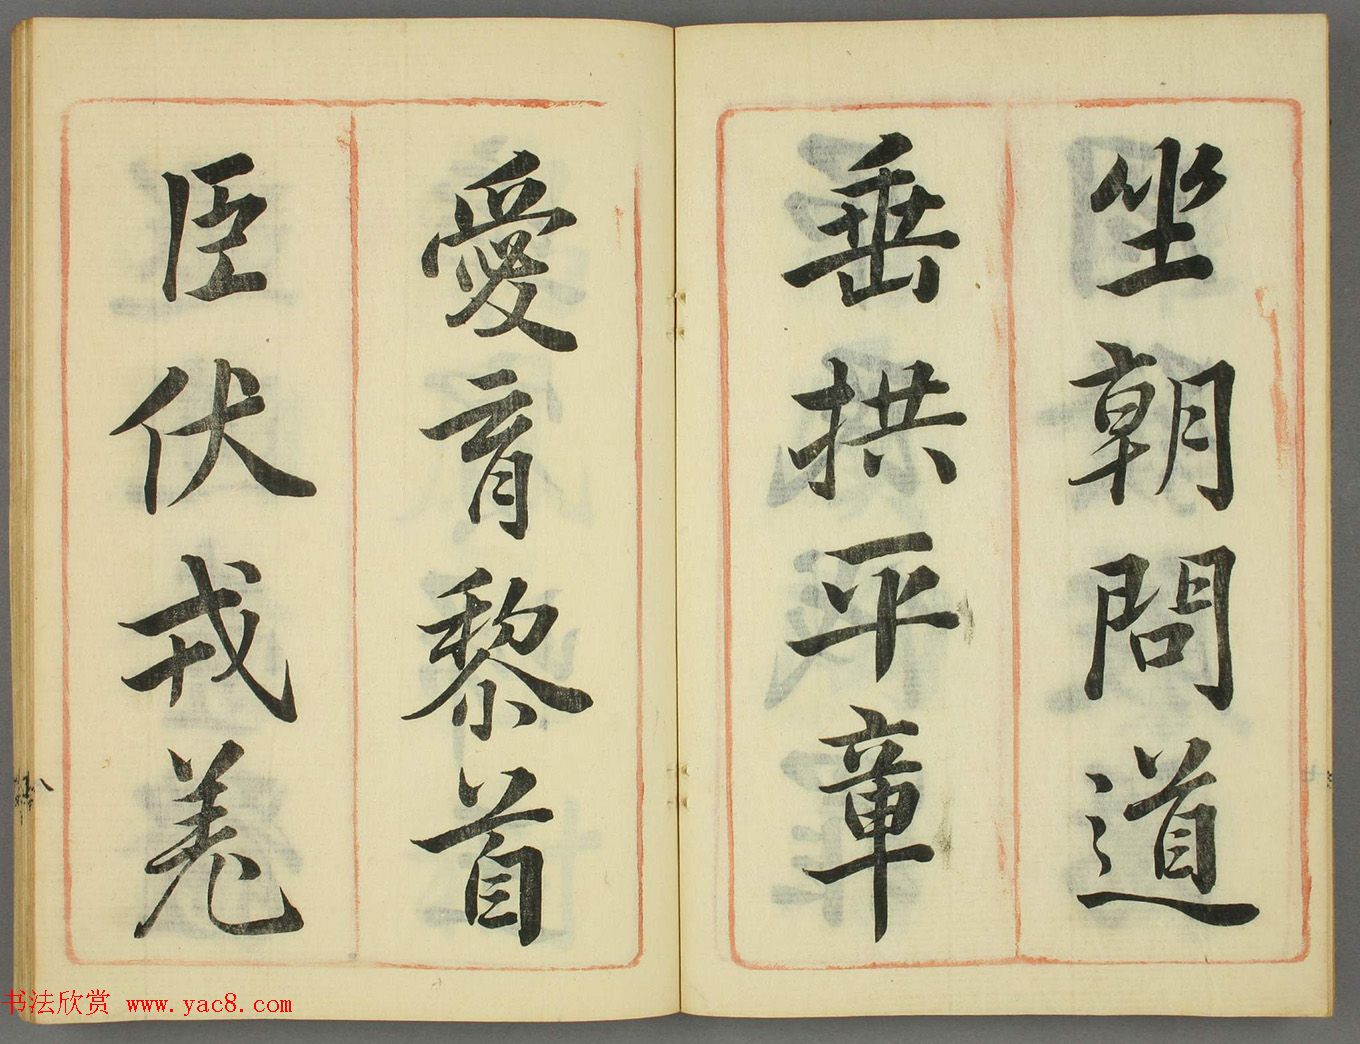 坐朝問道
垂拱平章
愛育黎首
臣伏戎羌
八
书法欣赏 www.yac8.com